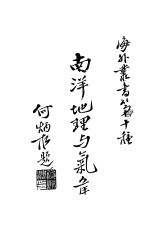 海外叢書第十種
南洋地理与氣候
何炳松題